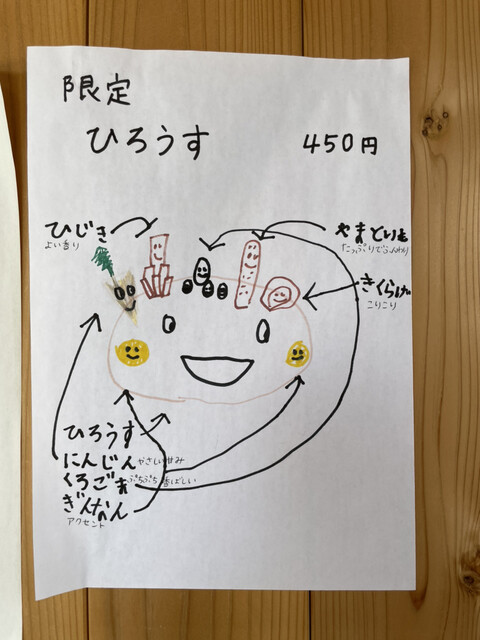 限定
ひろうす
450円
ひじき
よい香り
やまといも
たっぷりでふんわり
きくらげ
こりこり
ひろうす
にんじん やさしい甘み
くろごま ぷちぷち香ばしい
ぎんなん
アクセント